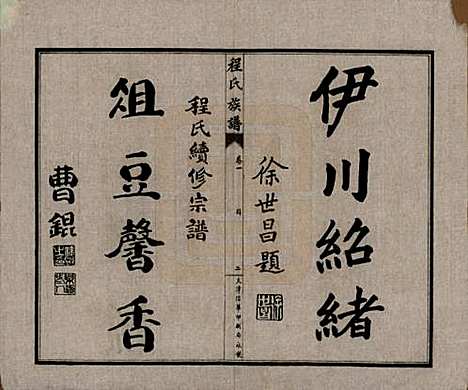 伊川紹緒
徐世昌題
程氏族譜
卷一
二
程氏續修宗譜
俎豆馨香
曹錕